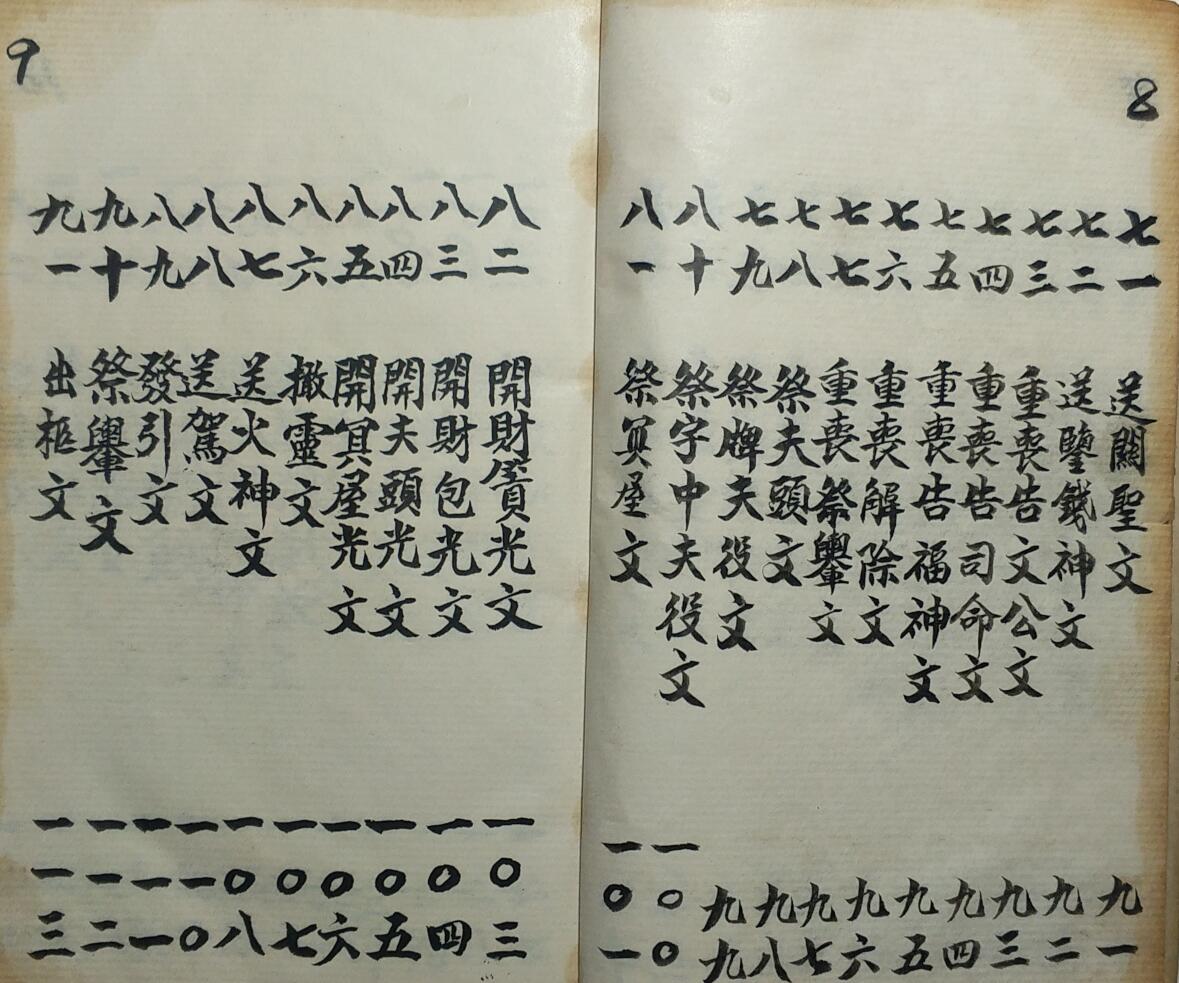 8
七一 送關聖文 九一
七二 送鑒錢神文 九二
七三 重喪告文公文 九三
七四 重喪告司命文 九四
七五 重喪告福神文 九五
七六 重喪解除文 九六
七七 重喪祭轝文 九七
七八 祭夫頭文 九八
七九 祭牌夫役文 九九
八十 祭字中夫役文 一〇〇
八一 祭冥屋文 一〇一
9
八二 開財屋員光文 一〇三
八三 開財包光文 一〇四
八四 開夫頭光文 一〇五
八五 開冥屋光文 一〇六
八六 撤靈文 一〇七
八七 送火神文 一〇八
八八 送駕文 一一〇
八九 發引文 一一一
九十 祭轝文 一一二
九一 出柩文 一一三